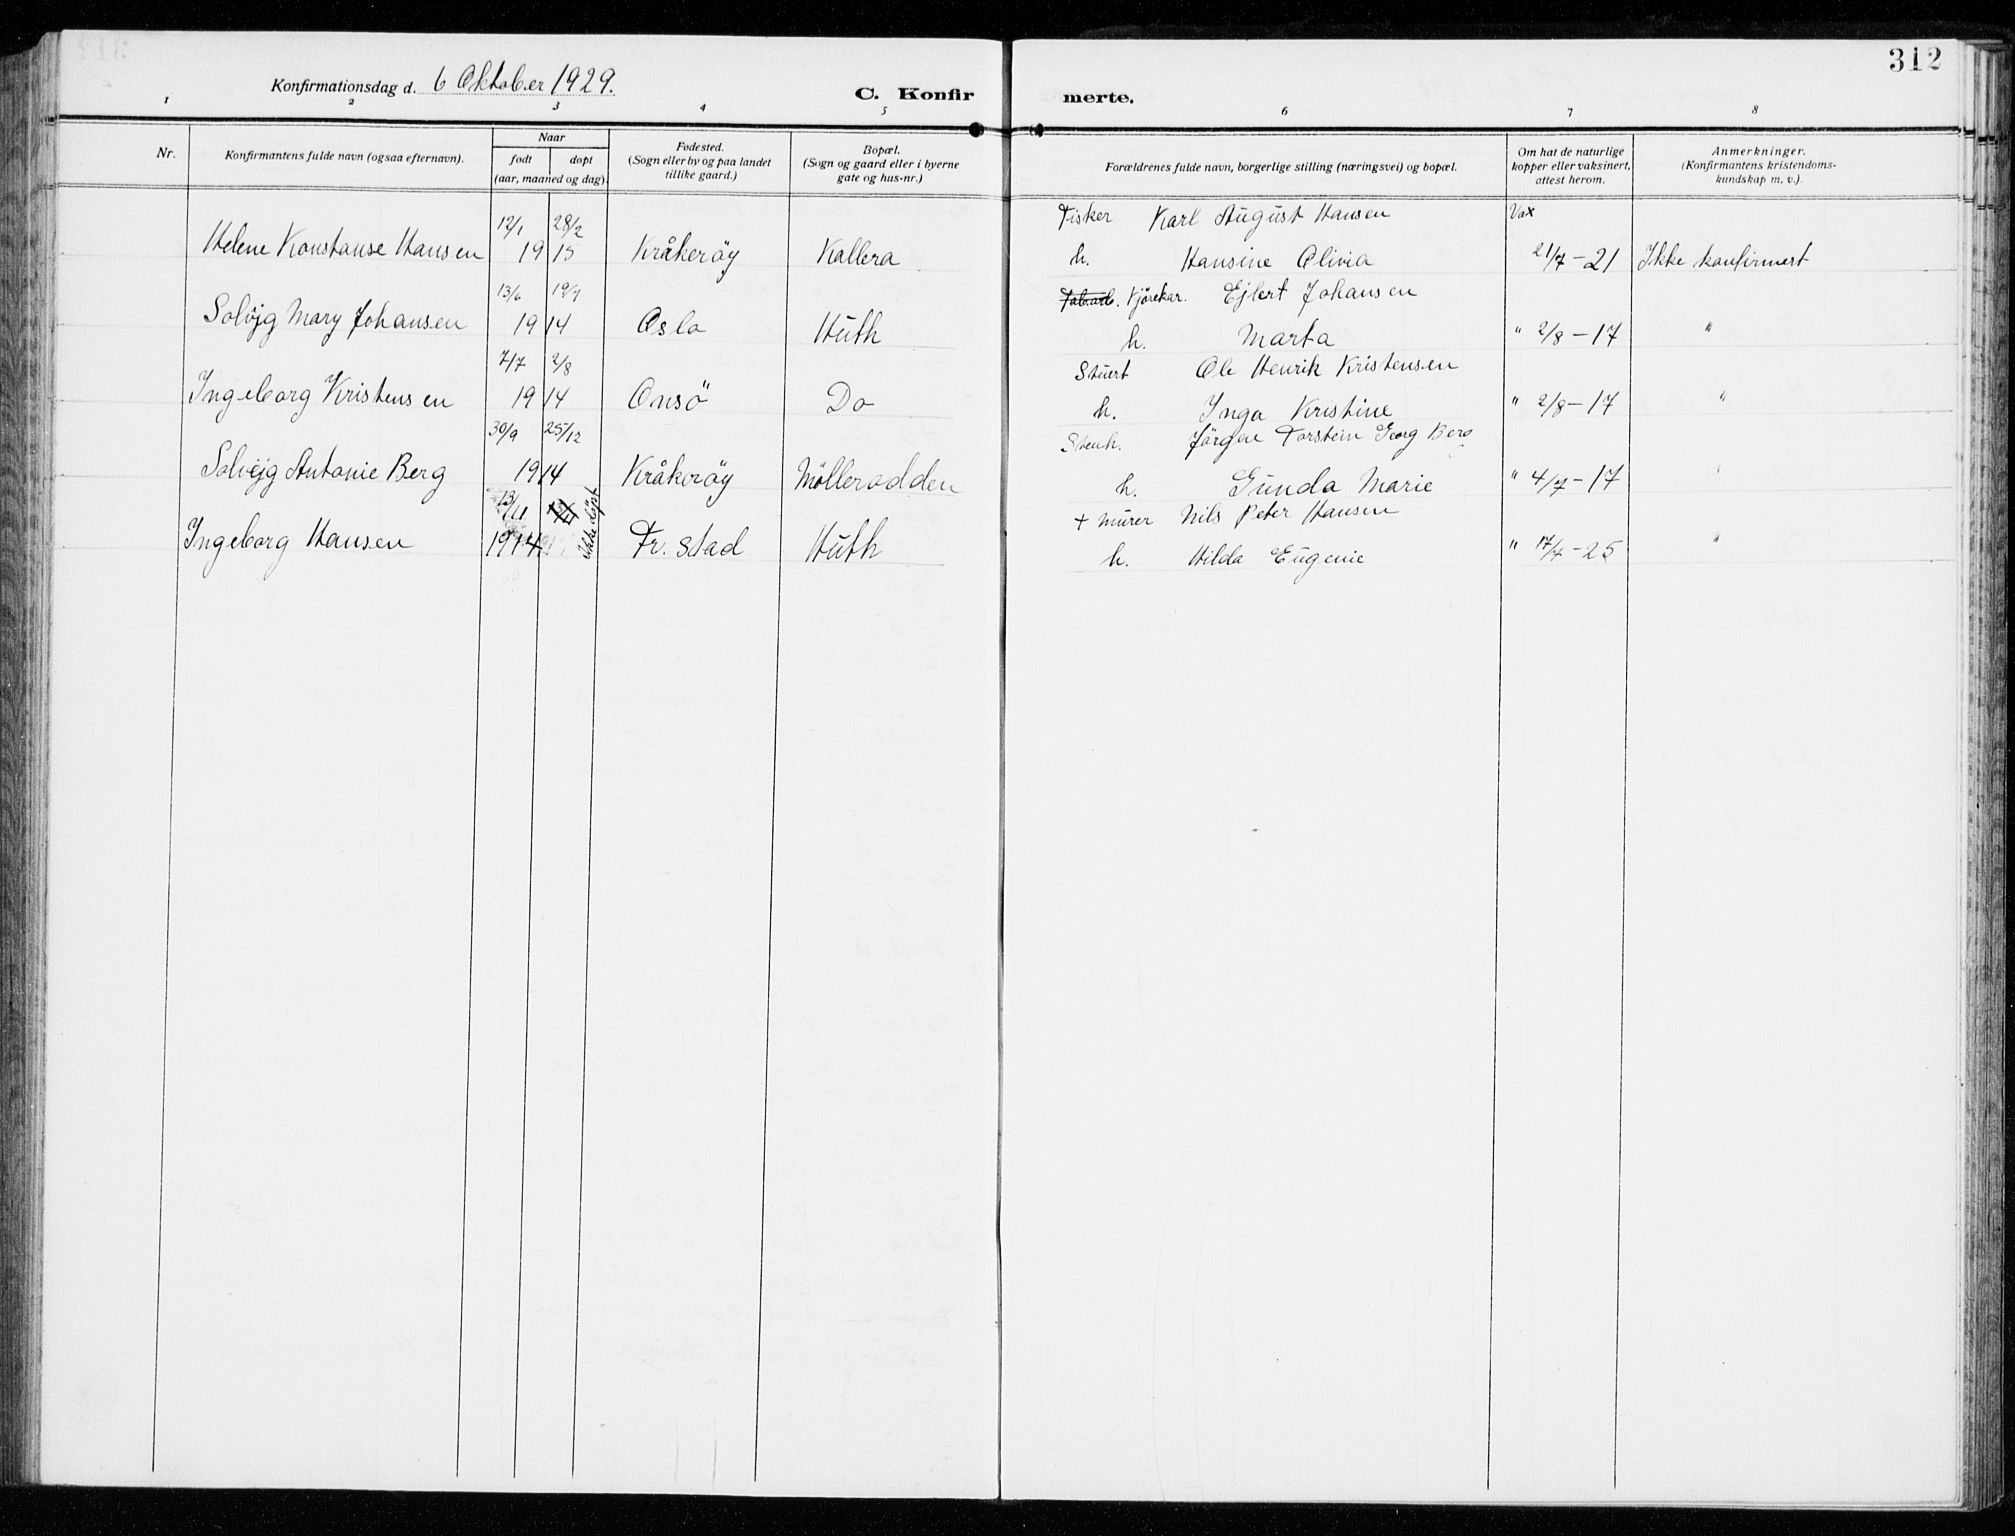 312
Konfirmationsdag d. 6 Oktober 1929.
C. Konfir merte.
1 2 3 4 5 6 7 8
Nr.
Konfirmantens fulde navn (ogsaa efternavn).
Naar
født døpt
(aar, maaned og dag).
Fødested.
(Sogn eller by og paa landet
tillike gaard.)
Bopæl.
(Sogn og gaard eller i byerne
gate og hus-nr.)
Forældrenes fulde navn, borgerlige stilling (næringsvei) og bopæl.
Om hat de naturlige
kopper eller vaksinert,
attest herom.
Anmerkninger.
(Konfirmantens kristendoms-
kundskap m. v.).
12/1 28/2 Fisker Karl August Hansen Vax
Helene Konstanse Hansen 19 15 Kråkeröy Kallera h. Hansine Olivia 21/7-21 Ikke konfirmert
13/6 Kjörekar. Ejlert Johansen
Solvjg Mary Johansen 19 14 Oslo Huth h. Marta " 2/8-17 "
7/7 2/8 Stuert Ole Henrik Kristensen
Ingeborg Kristensen 19 14 Onsö Do h. Inga Kristine " 2/8-17 "
30/9 25/12 Stenh. Jörgen Torstein Georg Berg
Solvejg Antonie Berg 19 14 Kråkeröy Möllerodden h. Gunda Marie " 4/7-17 "
13/11 Ikke döpt + Murer Nils Peter Hansen
Ingeborg Hansen 1914 Fr. stad Huth h. Hilda Eugenie " 17/7-25 "